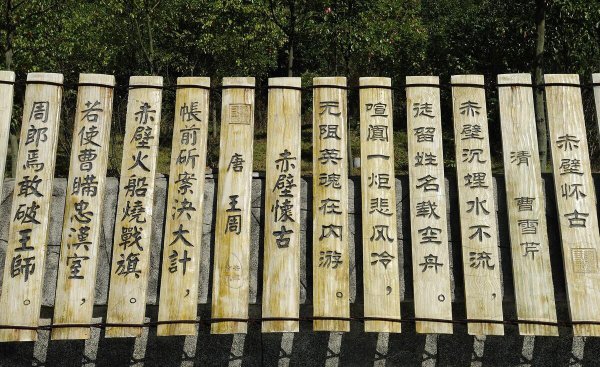 赤壁怀古
清 曹雪芹
赤壁沉埋水不流，
徒留姓名载空舟。
喧阗一炬悲风冷，
无限英魂在内游。
赤壁懷古
唐 王周
帳前斫案決大計，
赤壁火船燒戰旗。
若使曹瞞忠漢室，
周郎焉敢破王師。